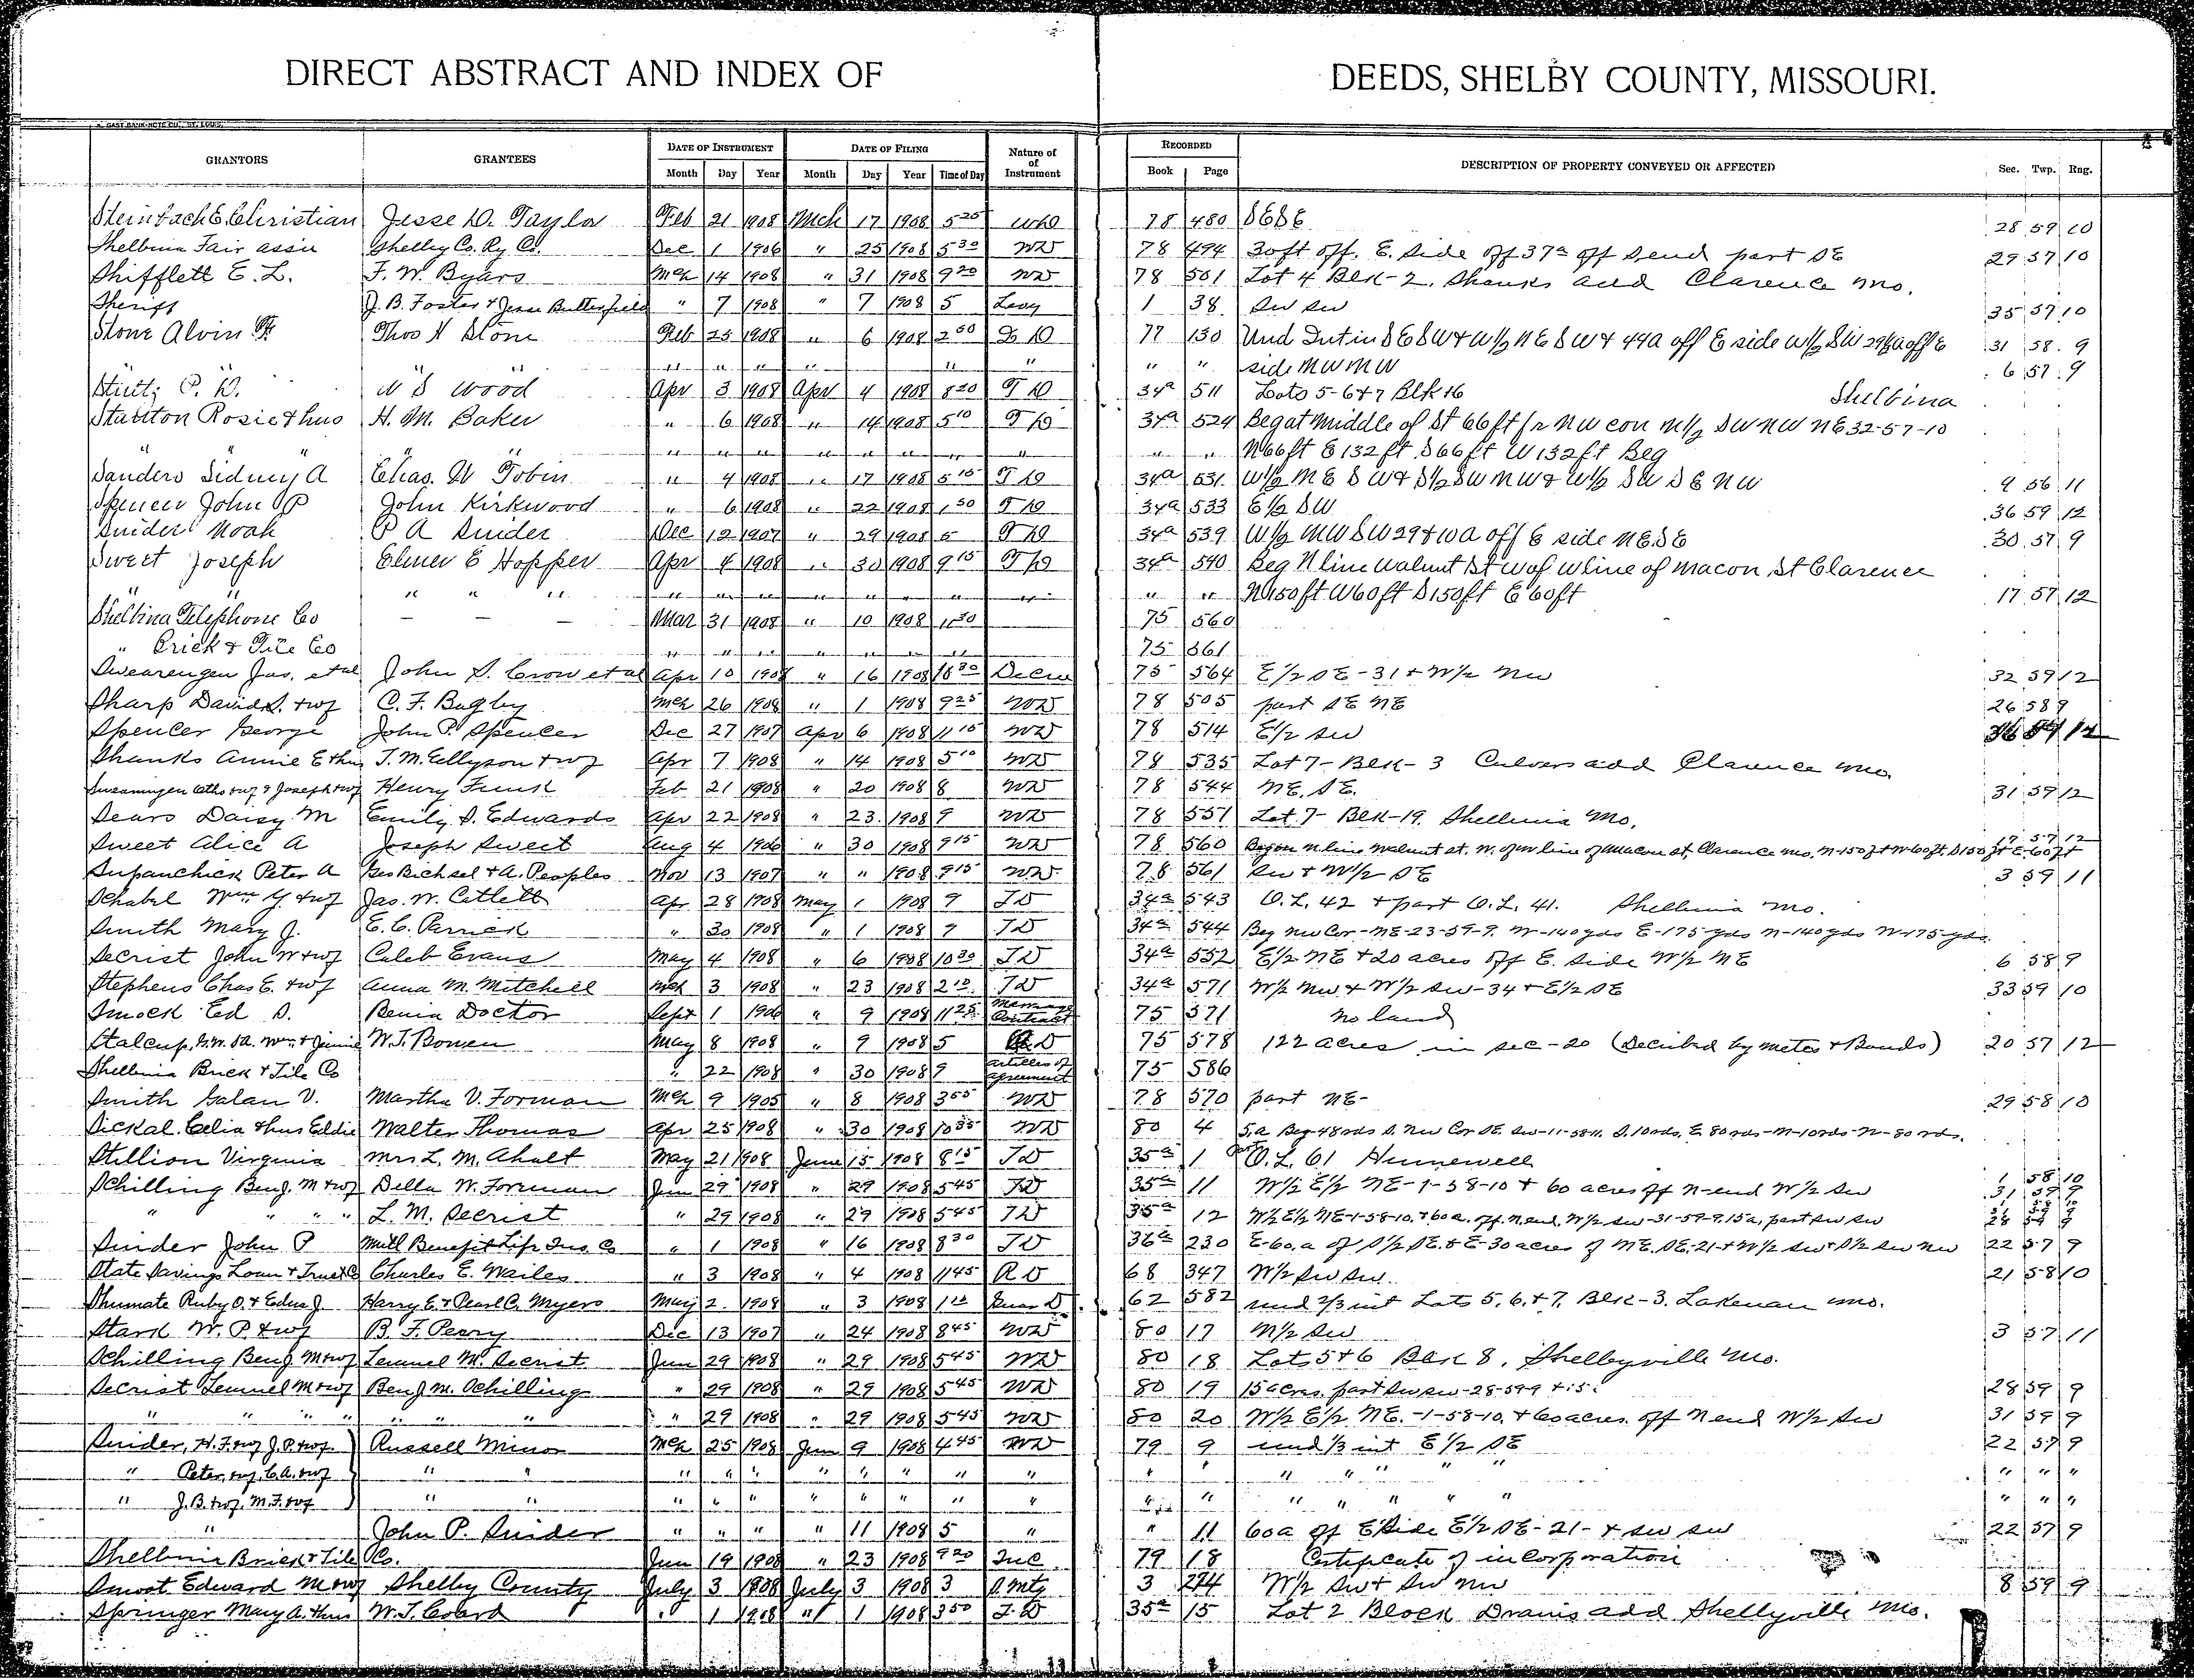 DIRECT ABSTRACT AND INDEX OF DEEDS, SHELBY COUNTY, MISSOURI.
GAST BANK-NOTE CO., ST. LOUIS.
GRANTORS GRANTEES DATE OF INSTRUMENT DATE OF FILING Nature of of Instrument RECORDED DESCRIPTION OF PROPERTY CONVEYED OR AFFECTED Sec. Twp. Rng.
Month Day Year Month Day Year Time of Day Book Page
Steinbach E. Christian Jesse D. Taylor Feb 21 1908 Mch 17 1908 5 25 WD 78 480 SESE 28 59 10
Shelbina Fair assn Shelby Co. Ry Co. Dec 1 1906 " 25 1908 5 30 WD 78 494 30 ft off. E. side off 37 a off S end part SE 29 57 10
Shifflett E. L. F. W. Byars Mch 14 1908 " 31 1908 9 20 WD 78 501 Lot 4 Blk-2. Shanks add Clarence Mo.
Sheriff J. B. Foster & Jesse Butterfield " 7 1908 " 7 1908 5 Levy 1 38 SW SW 35 57 10
Stone Alvin F. Thos H Stone Feb 25 1908 " 6 1908 2 50 77 130 Und Int in SESW & W1/2 NESW & 44a off E side W1/2 SW 29 1/2 a off E 31 58 9
" " " " " " " " " side NW NW 6 57 9
P. D. W S Wood Apr 3 1908 Apr 4 1908 8 20 T D 34a 511 Lots 5-6 & 7 Blk 16 Shelbina
Stanton Rosie & hus H. M. Baker " 6 1908 " 14 1908 5 10 T D 34a 524 Beg at Middle of St 66 ft fr NW cor N1/2 SW NW NE 32-57-10
" " " " " " " " " " " N 66 ft E 132 ft S 66 ft W 132 ft Beg
Sanders Sidney A Chas. W Tobin " 4 1908 " 17 1908 5 15 T D 34a 531 W1/2 NE SW & S1/2 SW NW & W1/2 SW SE NW 9 56 11
Spencer John P John Kirkwood " 6 1908 " 22 1908 1 30 T D 34a 533 E1/2 SW 36 59 12
Snider Noah P A Snider Dec 12 1907 " 29 1908 5 T D 34a 539 W1/2 NW SW 29 & 10 a off E side NE SE 30 57 9
Sweet Joseph Elmer E Hopper Apr 4 1908 " 30 1908 9 15 T D 34a 540 Beg N line Walnut St W of W line of Macon St Clarence
" " " " " " " " " " " " N 150 ft W 60 ft S 150 ft E 60 ft 17 57 12
Shelbina Telephone Co – – – Mar 31 1908 " 10 1908 11 30 75 560
" Brick & Tile Co " " " " " " " 75 561
Swearengen Jas. et al John S. Crow et al Apr 10 1908 " 16 1908 Decree 75 564 E1/2 SE - 31 & W1/2 NW 32 59 12
Sharp David S. & wf C. F. Bagby Mch 26 1908 " 1 1908 9 25 WD 78 505 part SE NE 26 58 9
Spencer George John P. Spencer Dec 27 1907 Apr 6 1908 11 15 WD 78 514 E1/2 SW 36 59 12
Shanks Annie E & hus T. M. Ellyson & wf Apr 7 1908 " 14 1908 5 10 WD 78 535 Lot 7 - Blk - 3 Culvers add Clarence Mo.
Swearingen Otho & wf & Joseph & wf Henry Funk Feb 21 1908 " 20 1908 8 WD 78 544 NE. SE. 31 59 12
Sears Daisy M Emily S. Edwards Apr 22 1908 " 23 1908 9 WD 78 551 Lot 7 - Blk - 19. Shelbina Mo.
Sweet Alice A Joseph Sweet Aug 4 1906 " 30 1908 9 15 WD 78 560 Beg on N line Walnut St. W. of W line of Macon St, Clarence Mo. N-150 ft W-60 ft. S 150 ft E-60 ft 17 57 12
Supanchick Peter A Geo Bichsel & A. Peoples Nov 13 1907 " " 1908 9 15 WD 78 561 SW & W1/2 SE 3 59 11
Schabel Wm Y & wf Jas. W. Catlett Apr 28 1908 May 1 1908 9 TD 34a 543 O.L. 42 & part O.L. 41. Shelbina Mo.
Smith Mary J. E. C. " 30 1908 " 1 1908 9 TD 34a 544 Beg NW Cor - NE-23-59-9. W-140 yds E-175 yds N-140 yds W-175 yds.
Secrist John W & wf Caleb Evans May 4 1908 " 6 1908 10 30 TD 34a 552 E1/2 NE & 20 acres off E. side W1/2 NE 6 58 9
Stephens Chas E. & wf Anna M. Mitchell Mch 3 1908 " 23 1908 2 10 TD 34a 571 W1/2 NW & W1/2 SW-34 & E1/2 SE 33 59 10
Smock Ed S. Benia Doctor Sept 1 1906 " 9 1908 11 25 Marriage Contract 75 571 no land
Stalcup, Wm. & Jennie W. T. Bowen May 8 1908 " 9 1908 5 D 75 578 122 acres in sec - 20 (Decribed by metes & Bounds) 20 57 12
Shelbina Brick & Tile Co " 22 1908 " 30 1908 9 Articles of agreement 75 586
Smith Galan V. Martha V. Forman Mch 9 1905 " 8 1908 3 55 WD 78 570 part NE- 29 58 10
Sickal. Celia & hus Eddie Walter Thomas Apr 25 1908 " 30 1908 10 35 WD 80 4 5. a Beg 48 rds S. NW Cor SE. SW-11-58-11. S. 10 rds, E. 80 rds - N-10 rds - W-80 rds.
Stillion Virginia Mrs. L. M. Ahalt May 21 1908 June 15 1908 8 15 TD 35a 1 Pt O.L. 61 Hunnewell
Schilling Benj. M & wf Della W. Foreman Jun 29 1908 " 29 1908 5 45 TD 35a 11 W1/2 E1/2 NE-1-58-10 & 60 acres off N-end W1/2 SW 1 58 10 31 59 9
" " " " L. M. Secrist " 29 1908 " 29 1908 5 45 TD 35a 12 W1/2 E1/2 NE-1-58-10. & 60 a. off. N. end. W1/2 SW-31-59-9. 15 a, part SW SW 28 59 9
Snider John P Mutl Benefit Life Ins. Co " 1 1908 " 16 1908 8 30 TD 36a 230 E-60. a of S1/2 SE. & E-30 acres of NE. SE.-21 & W1/2 SW & S1/2 SW NW 22 57 9
State Savings Loan & Trust Co Charles E. Wailes " 3 1908 " 4 1908 11 45 RD 68 347 W1/2 SW SW 21 58 10
Shumate Ruby O. & Edus J. Harry E. & Pearl C. Myers May 2 1908 " 3 1908 1 Guar D. 62 582 und 2/3 int Lots 5. 6. & 7. Blk - 3. Lakenan Mo.
Stark W. P. & wf B. F. Perry Dec 13 1907 " 24 1908 8 45 WD 80 17 N1/2 SW 3 57 11
Schilling Benj M & wf Lemuel M. Secrist Jun 29 1908 " 29 1908 5 45 WD 80 18 Lots 5 & 6 Blk 8, Shelbyville Mo.
Secrist Lemuel M & wf Benj M. Schilling " 29 1908 " 29 1908 5 45 WD 80 19 15 acres. part SW SW-28-59-9 28 59 9
" " " " " " " " 29 1908 " 29 1908 5 45 WD 80 20 W1/2 E1/2 NE.-1-58-10. & 60 acres. off N end W1/2 SW 31 59 9
Snider, H. F. & wf J. P. & wf. Russell Minor Mch 25 1908 Jun 9 1908 4 45 WD 79 9 und 1/3 int E1/2 SE 22 57 9
" Peter, & wf, C. A. & wf " " " " " " " " " " " " " " " " " " " "
" J. B. & wf, M. F. & wf " " " " " " " " " " " " " " " " " " " "
" John P. Snider " " " " 11 1908 5 " " 11 60 a off E side E1/2 SE-21- & SW SW 22 57 9
Shelbina Brick & Tile Co. Jun 19 1908 " 23 1908 9 20 Inc. 79 18 Certificate of incorporation
Smoot Edward M & wf Shelby County July 3 1908 July 3 1908 3 S. Mtg 3 274 W1/2 SW & SW NW 8 59 9
Springer Mary A. & hus W. T. Coard " 1 1908 " 1 1908 3 50 T. D 35a 15 Lot 2 Block Drains add Shelbyville Mo.